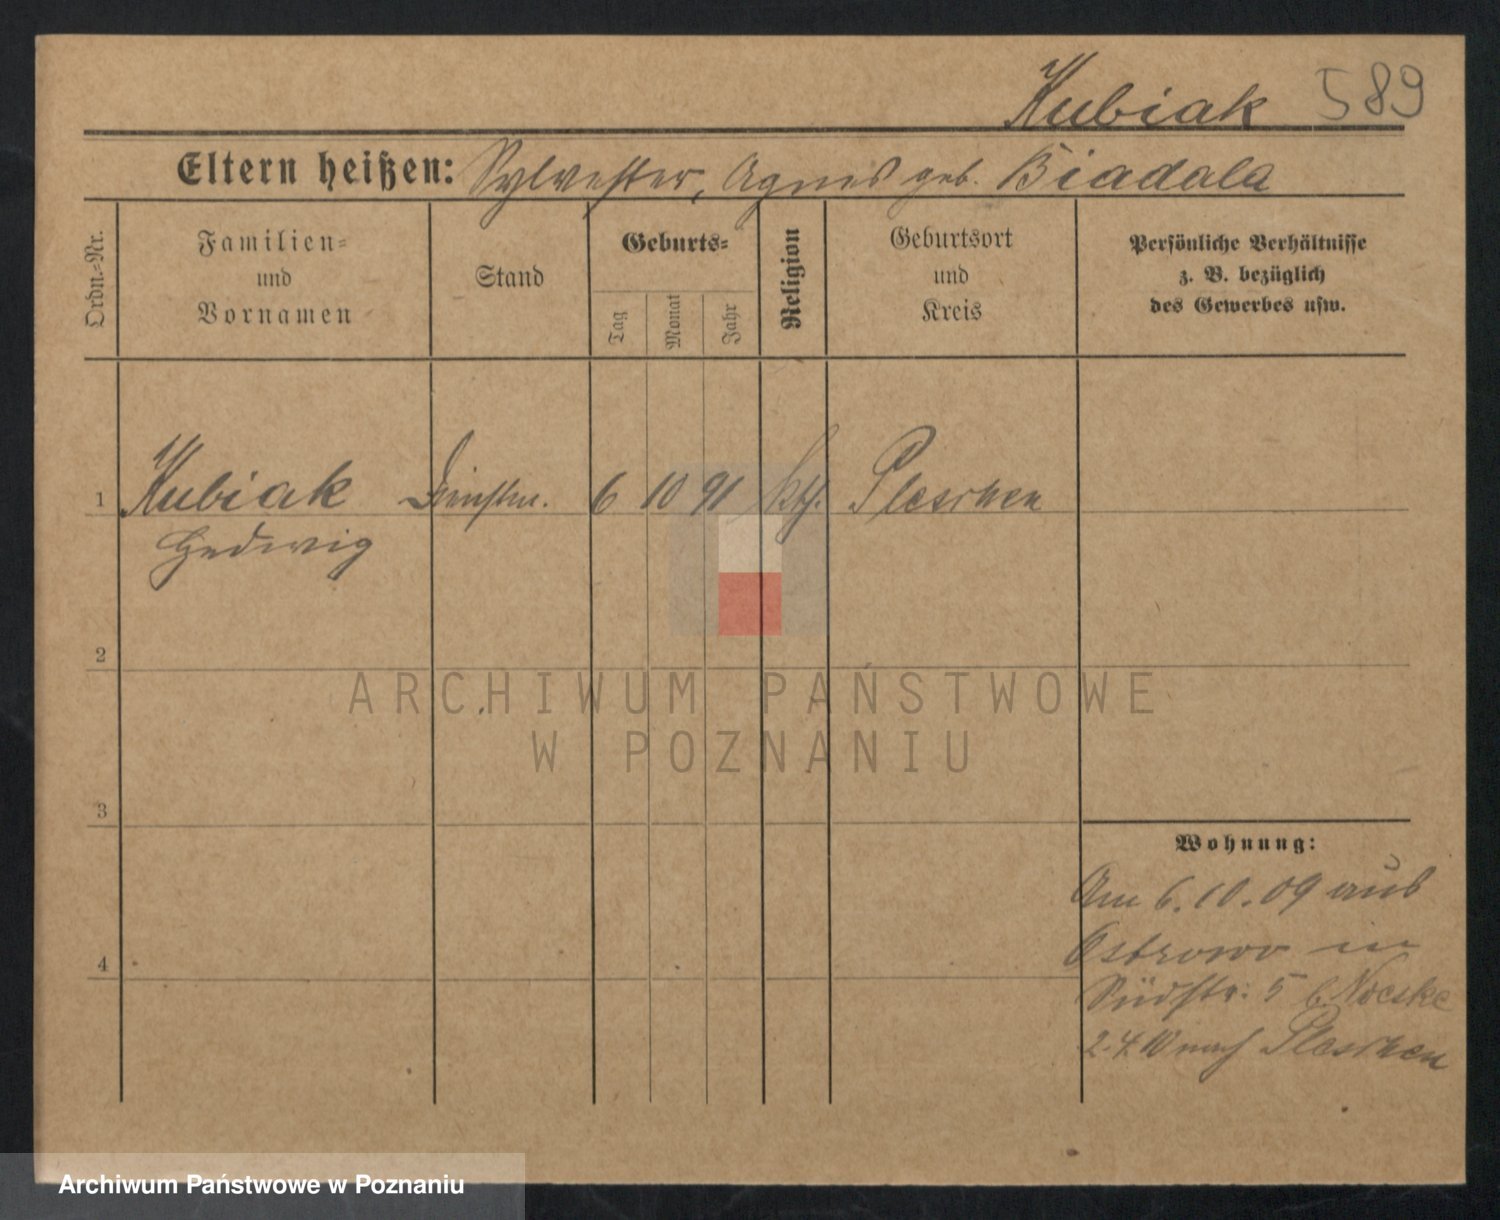 Kubiak 589
Eltern heißen: Sylvester, Agnes geb. Biadala
Ordn.-Nr.
Familien-
und
Vornamen
Stand
Geburts-
Tag
Monat
Jahr
Religion
Geburtsort
und
Kreis
Persönliche Verhältnisse
z. B. bezüglich
des Gewerbes usw.
1 Kubiak Dienstm. 6 10 91 kth. Pleschen
Hedwig
2
ARCHIWUM PAŃSTWOWE
W POZNANIU
3
Wohnung:
Am 6.10.09 aus
Ostrowo in
Südstr: 5 b. Noeske
4
2.4.10 nach Pleschen
Archiwum Państwowe w Poznaniu